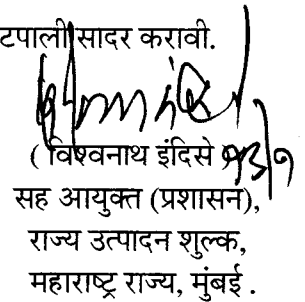 टपाली सादर करावी.
( विश्वनाथ इंदिसे )
सह आयुक्त (प्रशासन),
राज्य उत्पादन शुल्क,
महाराष्ट्र राज्य, मुंबई .